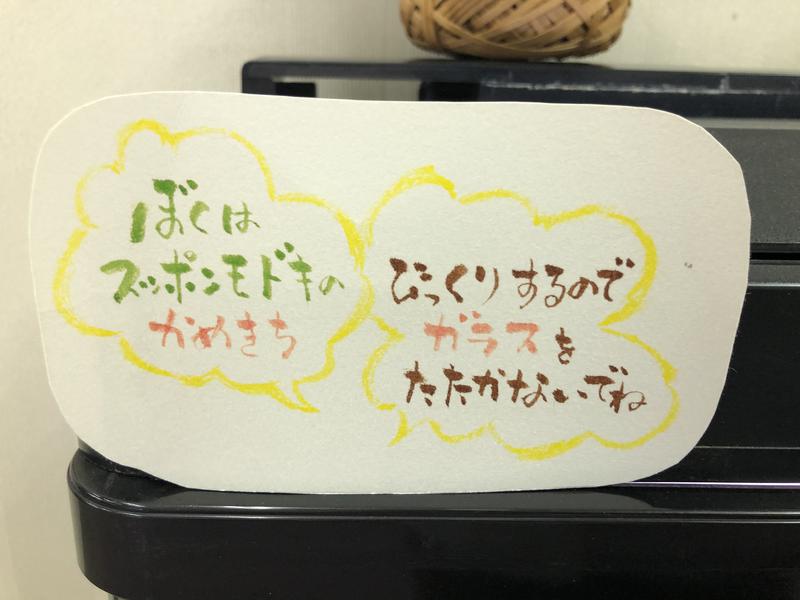 ぼくは
スッポンモドキの
かめきち
びっくりするので
ガラスを
たたかないでね